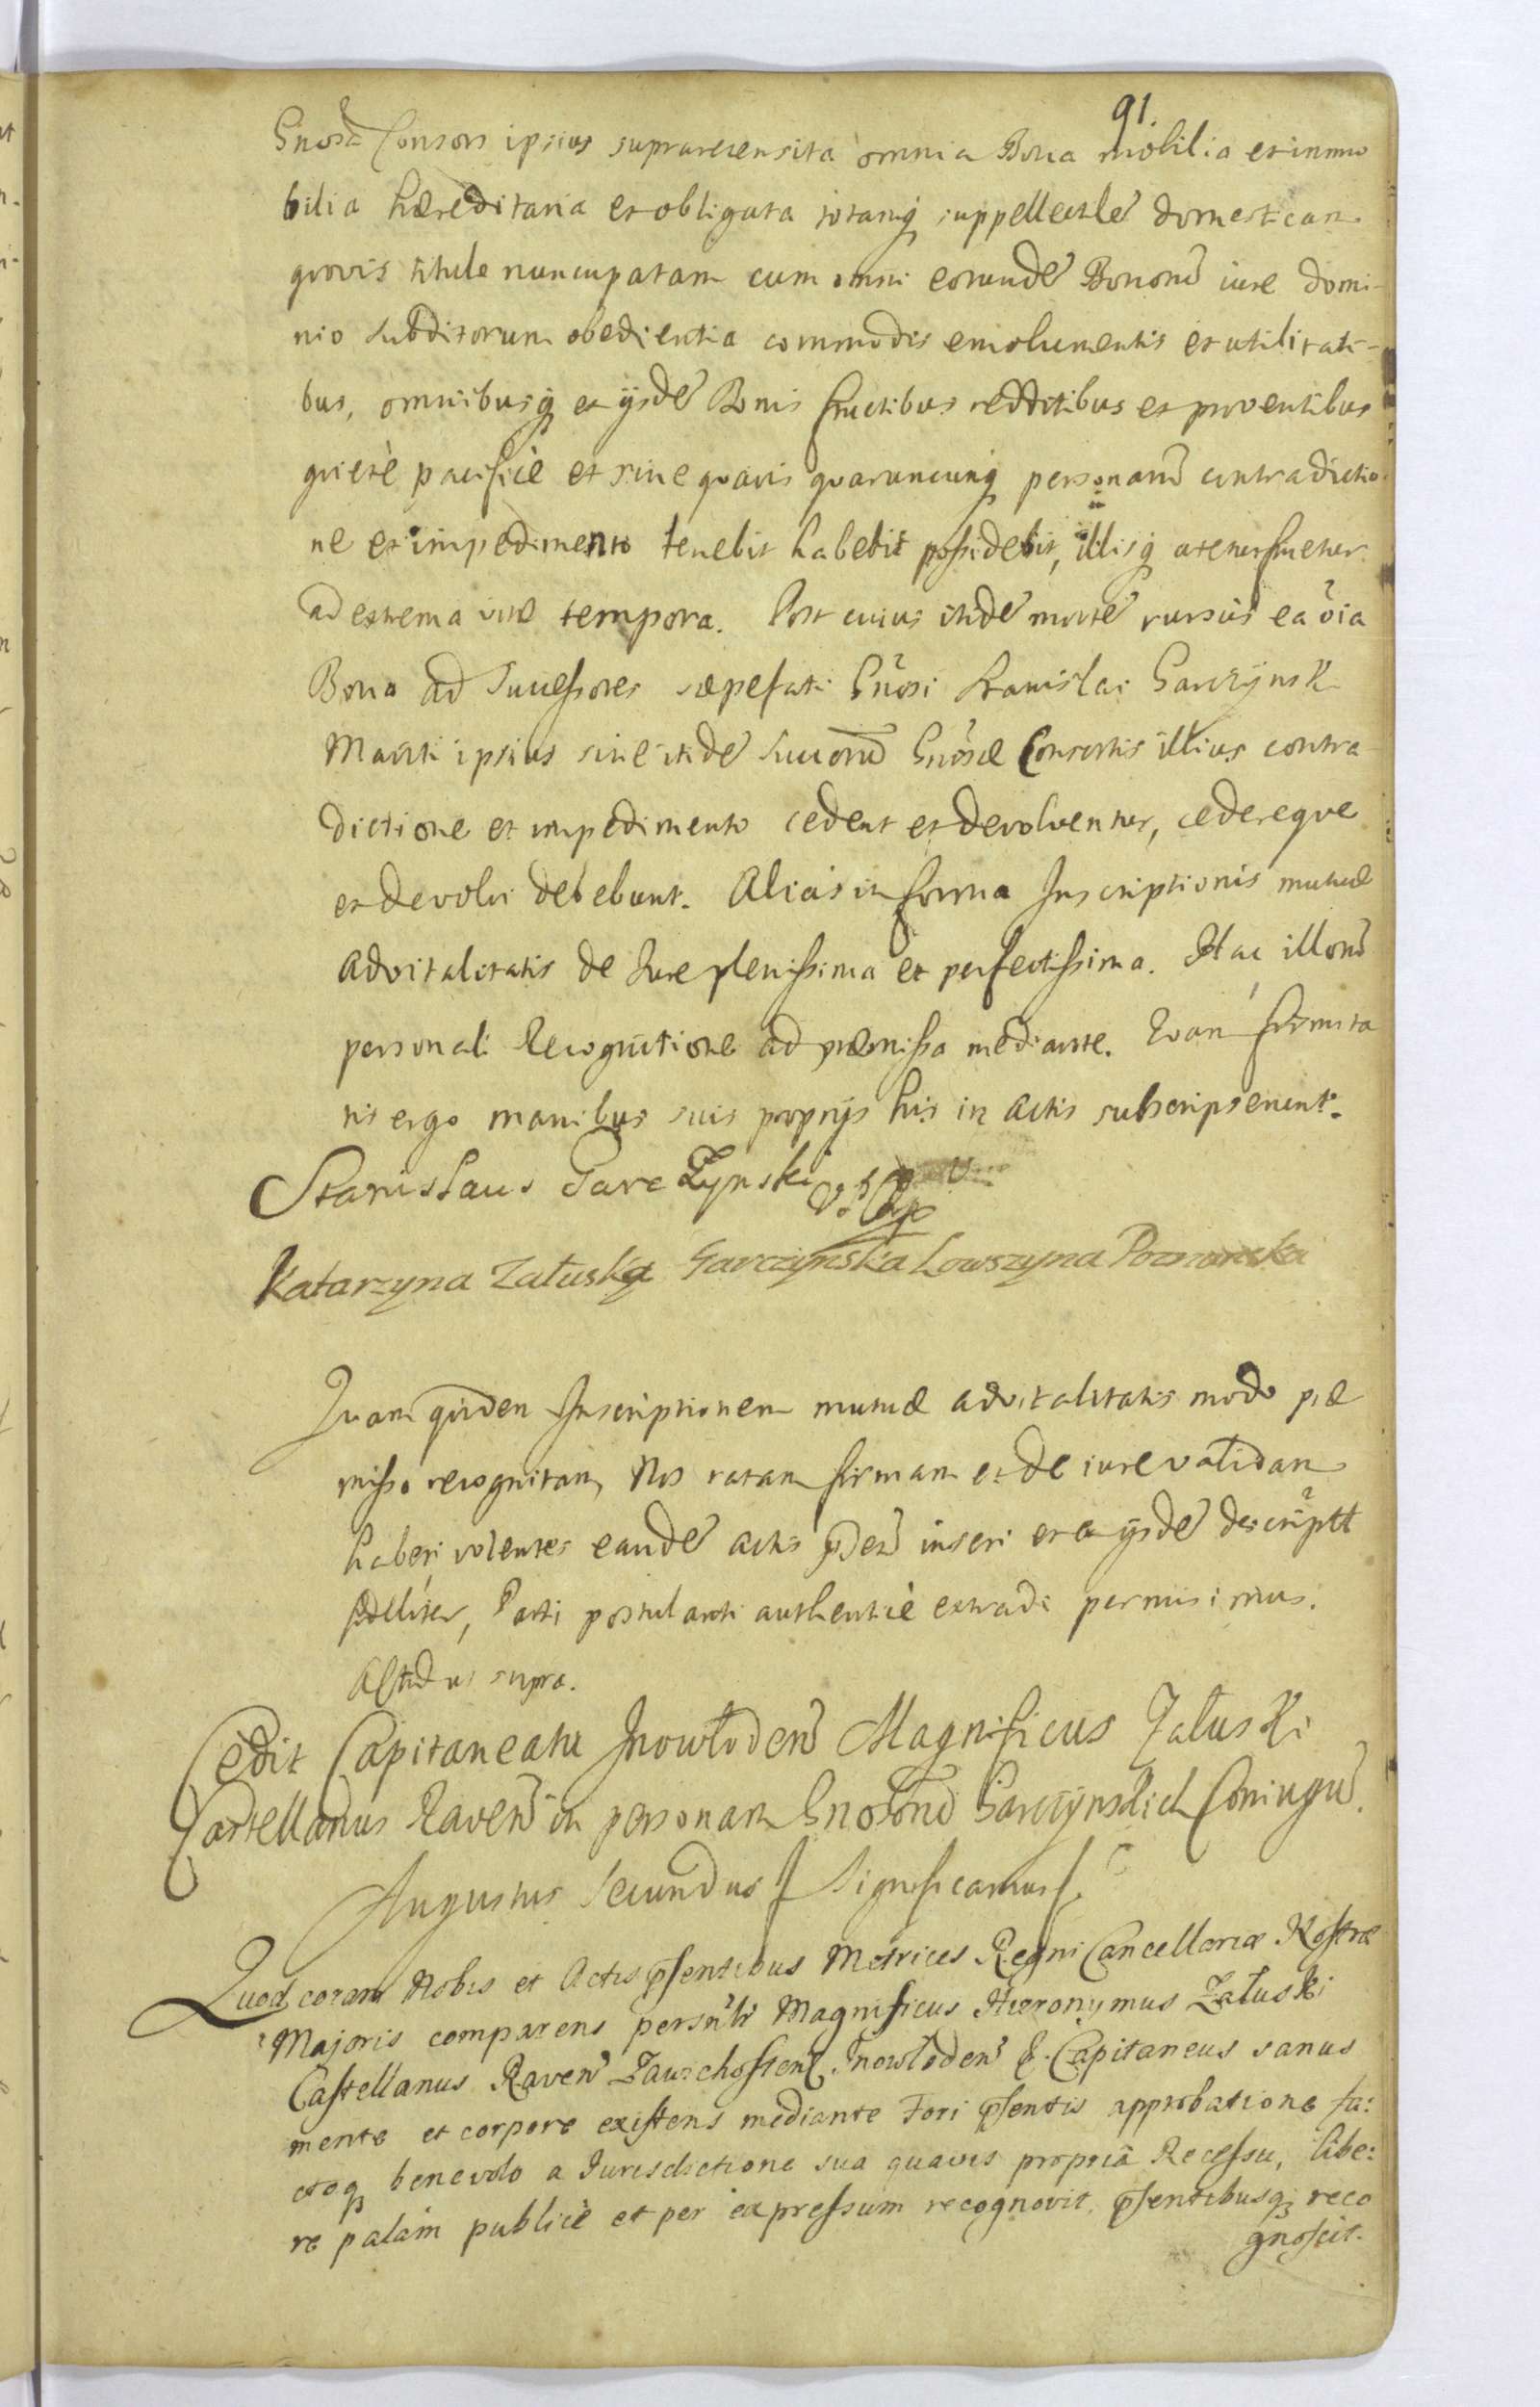 91.
Gnosa Consors ipsius suprarecensita omnia Bona mobilia et immo
bilia hæreditaria et obligata totamq suppellectile domesticam
quovis titulo nuncupatam cum omni eorunde Bonoru iure domi-
nio subditorum obedientia commodis emolumentis et utilitati-
bus, omnibusq ex ijsde Bonis fructibus redditibus et proventibus
quietè pacificè et sine quavis quaruncunq personaru contradictio
ne et impedimento tenebit habebit possidebit, illisq utetur fruetur
ad extrema vitæ tempora. Post cuius itide morte rursus ea oia
Bona ad Successores sæpefati Gnosi Stanislai Garczynsk
Mariti ipsius sine itide Succoru Gnosæ Consortis illius contra
dictione et impedimento cedent et devolventur, cedereque
et devolvi debebunt. Alias in forma Inscriptionis mutuæ
advitalitatis de Jure plenissima et perfectissima. Hac illoru
personali Recognitione ad præmissa mediante. Quam firmita
tis ergo manibus suis proprijs his in Actis subscripserunt.
Stanislaus Garczynski
Katarzyna Załuska Garczynska Łowszyna Poznanska
Quam quidem Inscriptionem mutuæ advitalitatis modo præ
misso recognitam, Nos ratam firmam et de iure validam
haberi volentes eande actis pden inseri et ex ijsde descriptt
fideliter, Parti postulanti authenticè extradi permisimus.
Act ut supra.
Cedit Capitaneatu Inowłoden Magnificus Załuski
Castellanus Raven in personam Gnosoru Garczynskich Coniugu.
Augustus Secundus Significamus
Quod coram Nobis et Actis psentibus Metrices Regni Cancellariæ Nostræ
Majoris comparens persnlr Magnificus Hieronymus Załuski
Castellanus Raven Zawichosten Inowłoden & Capitaneus sanus
mente et corpore existens mediante Fori psentis approbatione fa:
ctoq benevolo a Jurisdictione sua quavis propriâ Recessu, libe:
re palam publicè et per expressum recognovit, psentibusq reco
gnoscit.